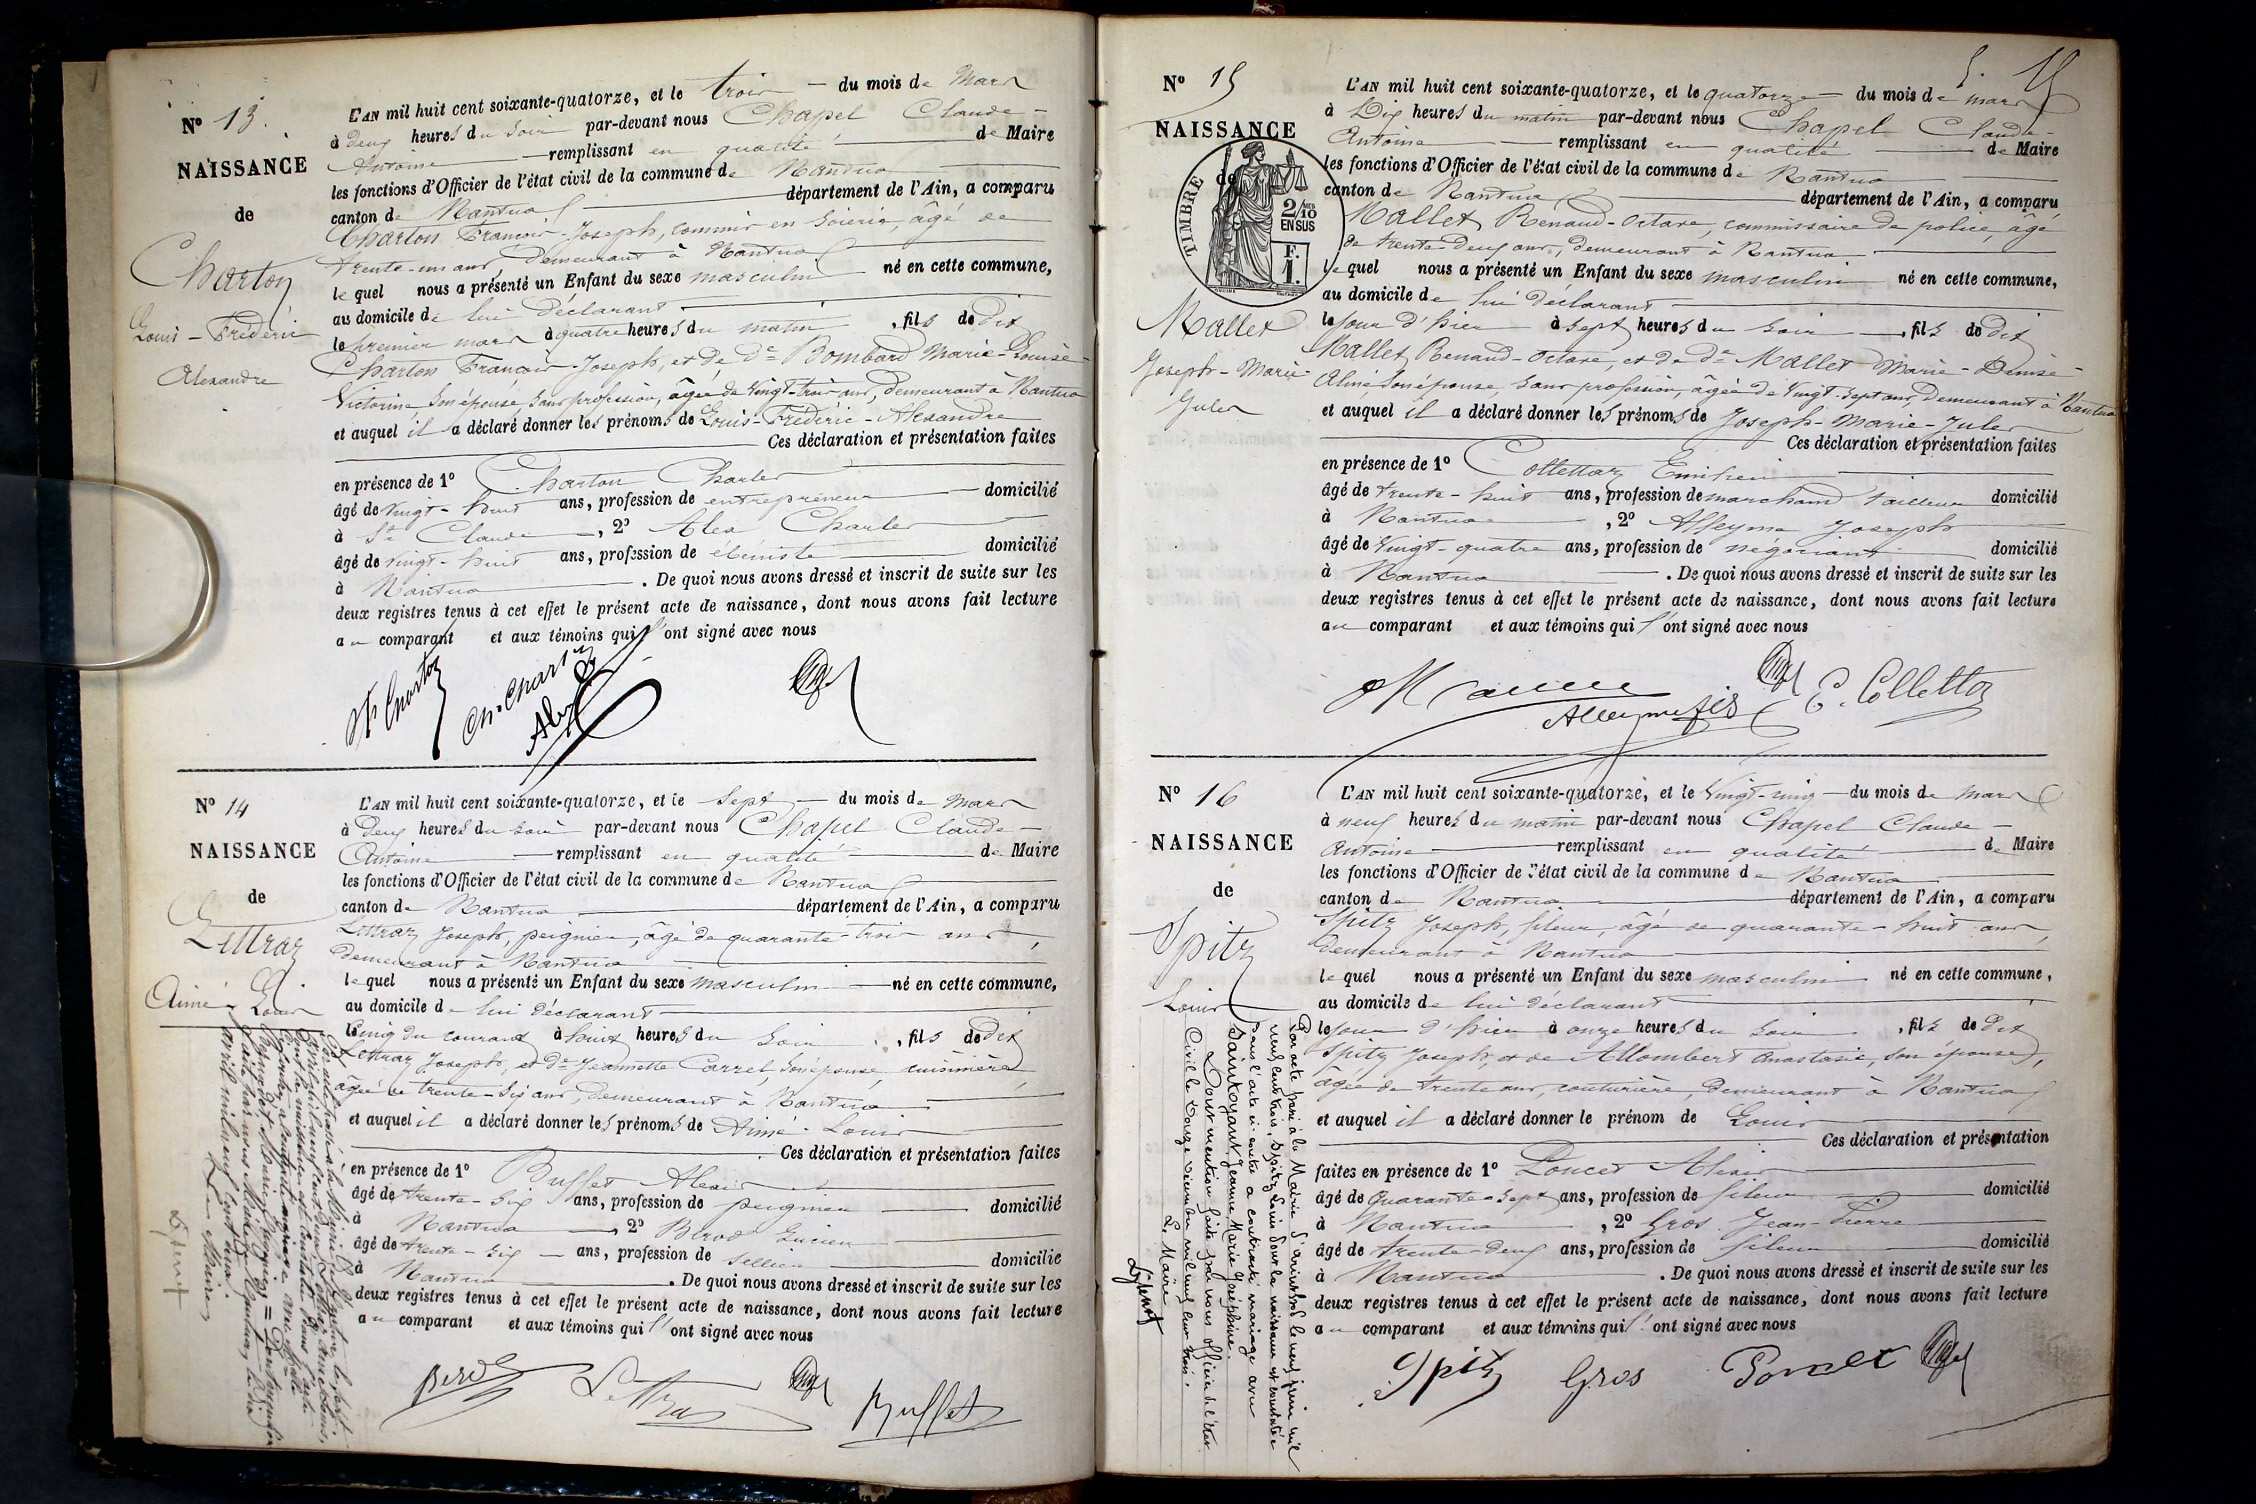 Nº 13.
NAISSANCE
de
Charton
Louis - Frédéric
Alexandre
L'AN mil huit cent soixante-quatorze, et le trois du mois de Mars
à deux heures du soir par-devant nous Chapel Claude-
Antoine remplissant en qualité de Maire
les fonctions d'Officier de l'état civil de la commune de Nantua
canton de Nantua département de l'Ain, a comparu
Charton François-Joseph, commis en soierie, âgé de
trente-un ans, demeurant à Nantua.
lequel nous a présenté un Enfant du sexe masculin né en cette commune,
au domicile de lui déclarant
le premier mars à quatre heures du matin, fils de dit
Charton François-Joseph, et de De Bombard Marie-Louise-
Victorine son épouse sans profession, âgée de vingt-trois ans, demeurant à Nantua
et auquel il a déclaré donner les prénoms de Louis-Frédéric-Alexandre
Ces déclaration et présentation faites
en présence de 1º Charton Charles
âgé de vingt-huit ans, profession de entrepreneur domicilié
à St Claude, 2º Alex Charles
âgé de vingt-huit ans, profession de ébéniste domicilié
à Nantua. De quoi nous avons dressé et inscrit de suite sur les
deux registres tenus à cet effet le présent acte de naissance, dont nous avons fait lecture
au comparant et aux témoins qui l'ont signé avec nous
Nº 14
NAISSANCE
de
Lettraz
Aimé-Louis
L'AN mil huit cent soixante-quatorze, et le sept du mois de Mars
à deux heures du soir par-devant nous Chapel Claude-
Antoine remplissant en qualité de Maire
les fonctions d'Officier de l'état civil de la commune de Nantua
canton de Nantua département de l'Ain, a comparu
Lettraz Joseph, peignier, âgé de quarante-trois ans,
demeurant à Nantua
lequel nous a présenté un Enfant du sexe masculin né en cette commune,
au domicile de lui déclarant
le cinq du courant à huit heures du soir, fils de dit
Lettraz Joseph, et De Jeannette Carrel, son épouse, cuisinière,
âgée de trente-six ans, demeurant à Nantua
et auquel il a déclaré donner les prénoms de Aimé-Louis
Ces déclaration et présentation faites
en présence de 1º Buffet Alexis
âgé de trente-six ans, profession de peignier domicilié
à Nantua, 2º Bérod Lucien
âgé de trente-six ans, profession de sellier domicilié
à Nantua. De quoi nous avons dressé et inscrit de suite sur les
deux registres tenus à cet effet le présent acte de naissance, dont nous avons fait lecture
au comparant et aux témoins qui l'ont signé avec nous
Bérod Lettraz Buffet
15
Nº 15
NAISSANCE
de
TIMBRE
2/10 EN SUS
F. 1.
Mallet
Joseph-Marie-
Jules
L'AN mil huit cent soixante-quatorze, et le quatorze du mois de mars
à dix heures du matin par-devant nous Chapel Claude-
Antoine remplissant en qualité de Maire
les fonctions d'Officier de l'état civil de la commune de Nantua
canton de Nantua département de l'Ain, a comparu
Mallet Renaud-Octave, commissaire de police, âgé
de trente-deux ans, demeurant à Nantua.
lequel nous a présenté un Enfant du sexe masculin né en cette commune,
au domicile de lui déclarant
le jour d'hier à sept heures du soir, fils de dit
Mallet Renaud-Octave, et de De Mallet Marie-Denise-
Aliné son épouse, sans profession, âgée de vingt-sept ans, demeurant à Nantua
et auquel il a déclaré donner les prénoms de Joseph-Marie-Jules
Ces déclaration et présentation faites
en présence de 1º Collettaz Emilien
âgé de trente-huit ans, profession de marchand tailleur domicilié
à Nantua, 2º Alleyme Joseph
âgé de vingt-quatre ans, profession de négociant domicilié
à Nantua. De quoi nous avons dressé et inscrit de suite sur les
deux registres tenus à cet effet le présent acte de naissance, dont nous avons fait lecture
au comparant et aux témoins qui l'ont signé avec nous
Alleyme fils E. Collettaz
Nº 16
NAISSANCE
de
Spitz
Louis
L'AN mil huit cent soixante-quatorze, et le vingt-cinq du mois de Mars
à neuf heures du matin par-devant nous Chapel Claude-
Antoine remplissant en qualité de Maire
les fonctions d'Officier de l'état civil de la commune de Nantua
canton de Nantua département de l'Ain, a comparu
Spitz Joseph, fileur, âgé de quarante-huit ans,
demeurant à Nantua
lequel nous a présenté un Enfant du sexe masculin né en cette commune,
au domicile de lui déclarant
le jour d'hier à onze heures du soir, fils de dit
Spitz Joseph, et de Allombert Anastasie, son épouse,
âgée de trente ans, couturière, demeurant à Nantua
et auquel il a déclaré donner le prénom de Louis
Ces déclaration et présentation
faites en présence de 1º Poncet Alexis
âgé de quarante-sept ans, profession de fileur domicilié
à Nantua, 2º Gros Jean-Pierre
âgé de trente-deux ans, profession de fileur domicilié
à Nantua. De quoi nous avons dressé et inscrit de suite sur les
deux registres tenus à cet effet le présent acte de naissance, dont nous avons fait lecture
au comparant et aux témoins qui l'ont signé avec nous
Spitz Gros Poncet
Par acte passé à la Mairie d'Arinthod le neuf juin mil
neuf cent trois, Spitz Louis dont la naissance est constatée
dans l'acte ci-contre a contracté mariage avec
Saintoyant Jeanne Marie Joséphine.
Dont mention faite par nous officier de l'état
Civil le douze juin mil neuf cent trois.
Le Maire